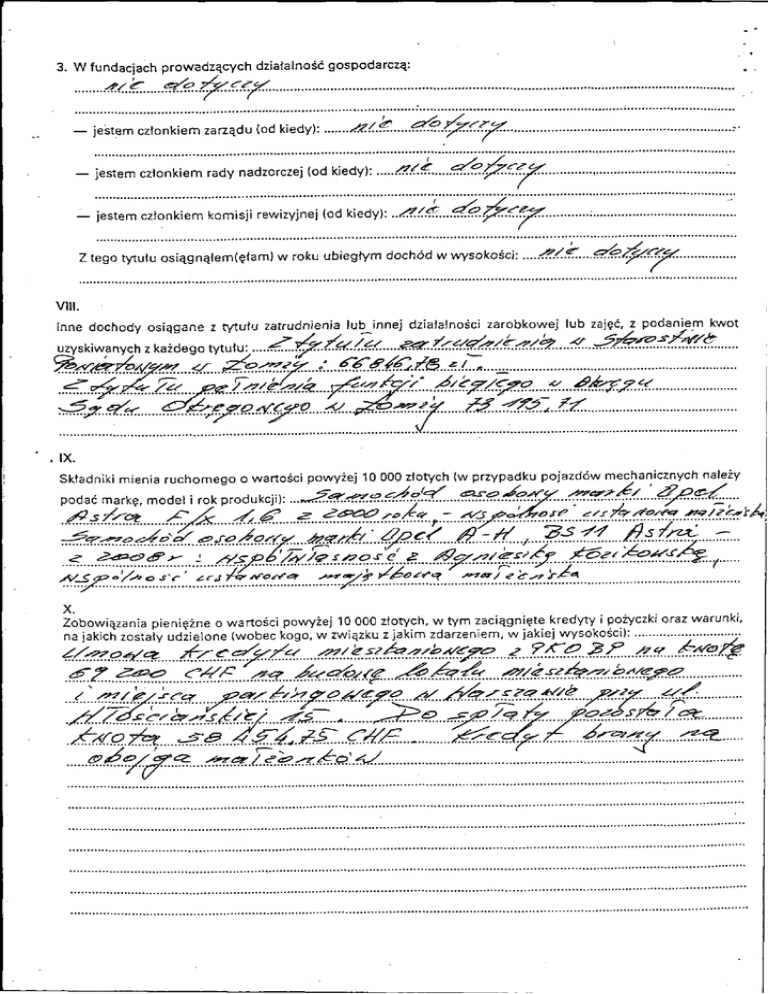 3. W fundacjach prowadzących działalność gospodarczą:
nie dotyczy
— jestem członkiem zarządu (od kiedy): nie dotyczy
— jestem członkiem rady nadzorczej (od kiedy): nie dotyczy
— jestem członkiem komisji rewizyjnej (od kiedy): nie dotyczy
Z tego tytułu osiągnąłem(ęłam) w roku ubiegłym dochód w wysokości: nie dotyczy
VIII.
Inne dochody osiągane z tytułu zatrudnienia lub innej działalności zarobkowej lub zajęć, z podaniem kwot
uzyskiwanych z każdego tytułu: Z tytułu zatrudnienia w Starostwie
Powiatowym w Łomży : 66 846,78 zł.
Z tytułu pełnienia funkcji biegłego w Okręgu
Sądu Okręgowego w Łomży 73 195,71
IX.
Składniki mienia ruchomego o wartości powyżej 10 000 złotych (w przypadku pojazdów mechanicznych należy
podać markę, model i rok produkcji): Samochód osobowy marki Opel
Astra F/x 1,6 z 2000 roku, - współność ustawowa małżeńska
Samochód osobowy marki Opel A-H, BS11 Astra -
z 2008 r : współwłasność z Agnieszką Łozikowską,
współność ustawowa majątkowa małżeńska
X.
Zobowiązania pieniężne o wartości powyżej 10 000 złotych, w tym zaciągnięte kredyty i pożyczki oraz warunki,
na jakich zostały udzielone (wobec kogo, w związku z jakim zdarzeniem, w jakiej wysokości):
Umowa kredytu mieszkaniowego z PKO BP na kwotę
69 200 CHF na budowę lokalu mieszkaniowego
i miejsca parkingowego w Warszawie przy ul.
Włościańskiej 15 . Do spłaty pozostała
kwota 58 454,75 CHF . Kredyt brany na
obojga małżonków